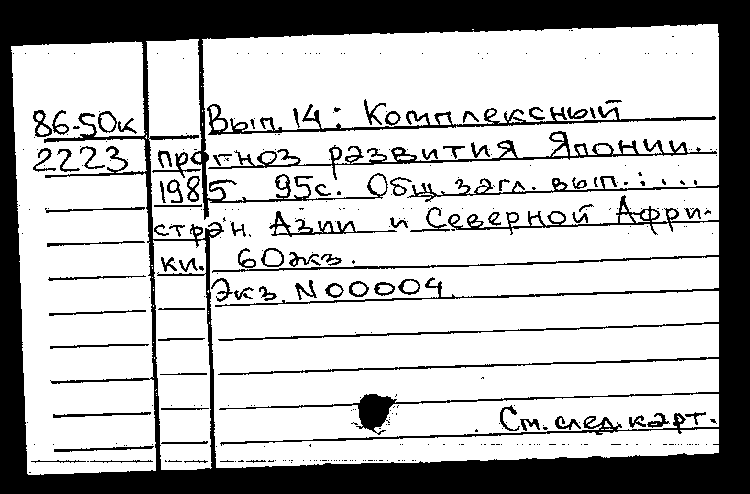 86-50к Вып. 14: Комплексный
2223 прогноз развития Японии.
1985. 95с. Общ. загл. вып.: ...
стран. Азии и Северной Афри-
ки. 60экз.
Экз. N00004.
См. след. карт.